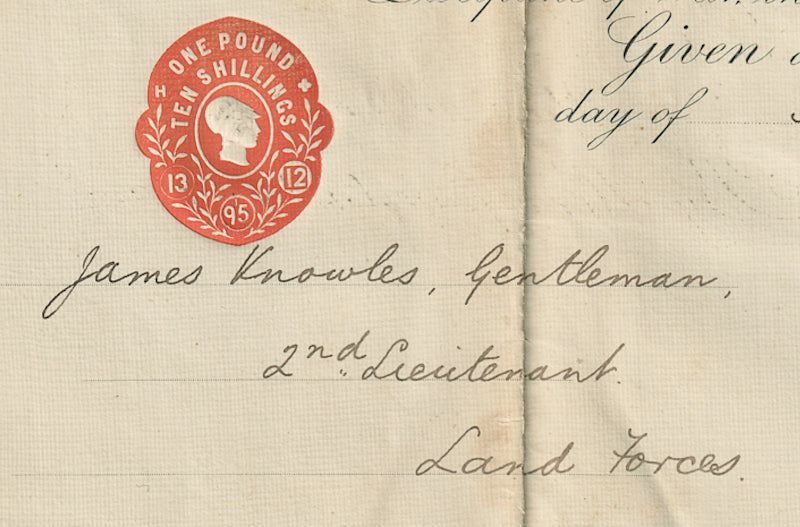 Given
day of
ONE POUND
TEN SHILLINGS
H
13 12
95
James Knowles, Gentleman,
2nd Lieutenant.
Land Forces.